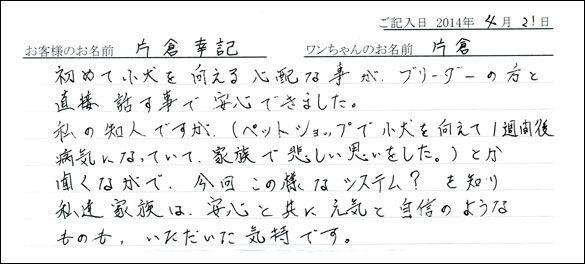 ご記入日 2014年 4月 21日
お客様のお名前 片倉幸記 ワンちゃんのお名前 片倉
初めて小犬を向える心配な事が、ブリーダーの方と
直接話す事で安心できました。
私の知人ですが、(ペットショップで小犬を向えて1週間後
病気になっていて、家族で悲しい思いをした。)とか
聞くなかで、今回この様なシステム？を知り
私達家族は、安心と共に元気と自信のような
ものも、いただいた気持です。